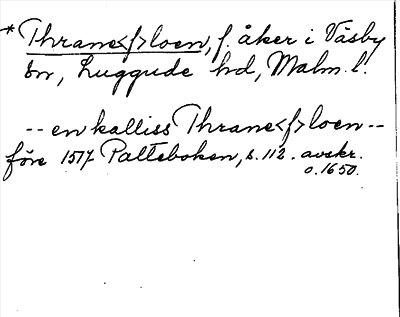 *Thrane<f>loen, f. åker i Väsby
sn, Luggude hd, Malm. l.
-- en kalliss Thrane<f>loen --
före 1517 Palteboken, s. 112. avskr.
o. 1650.